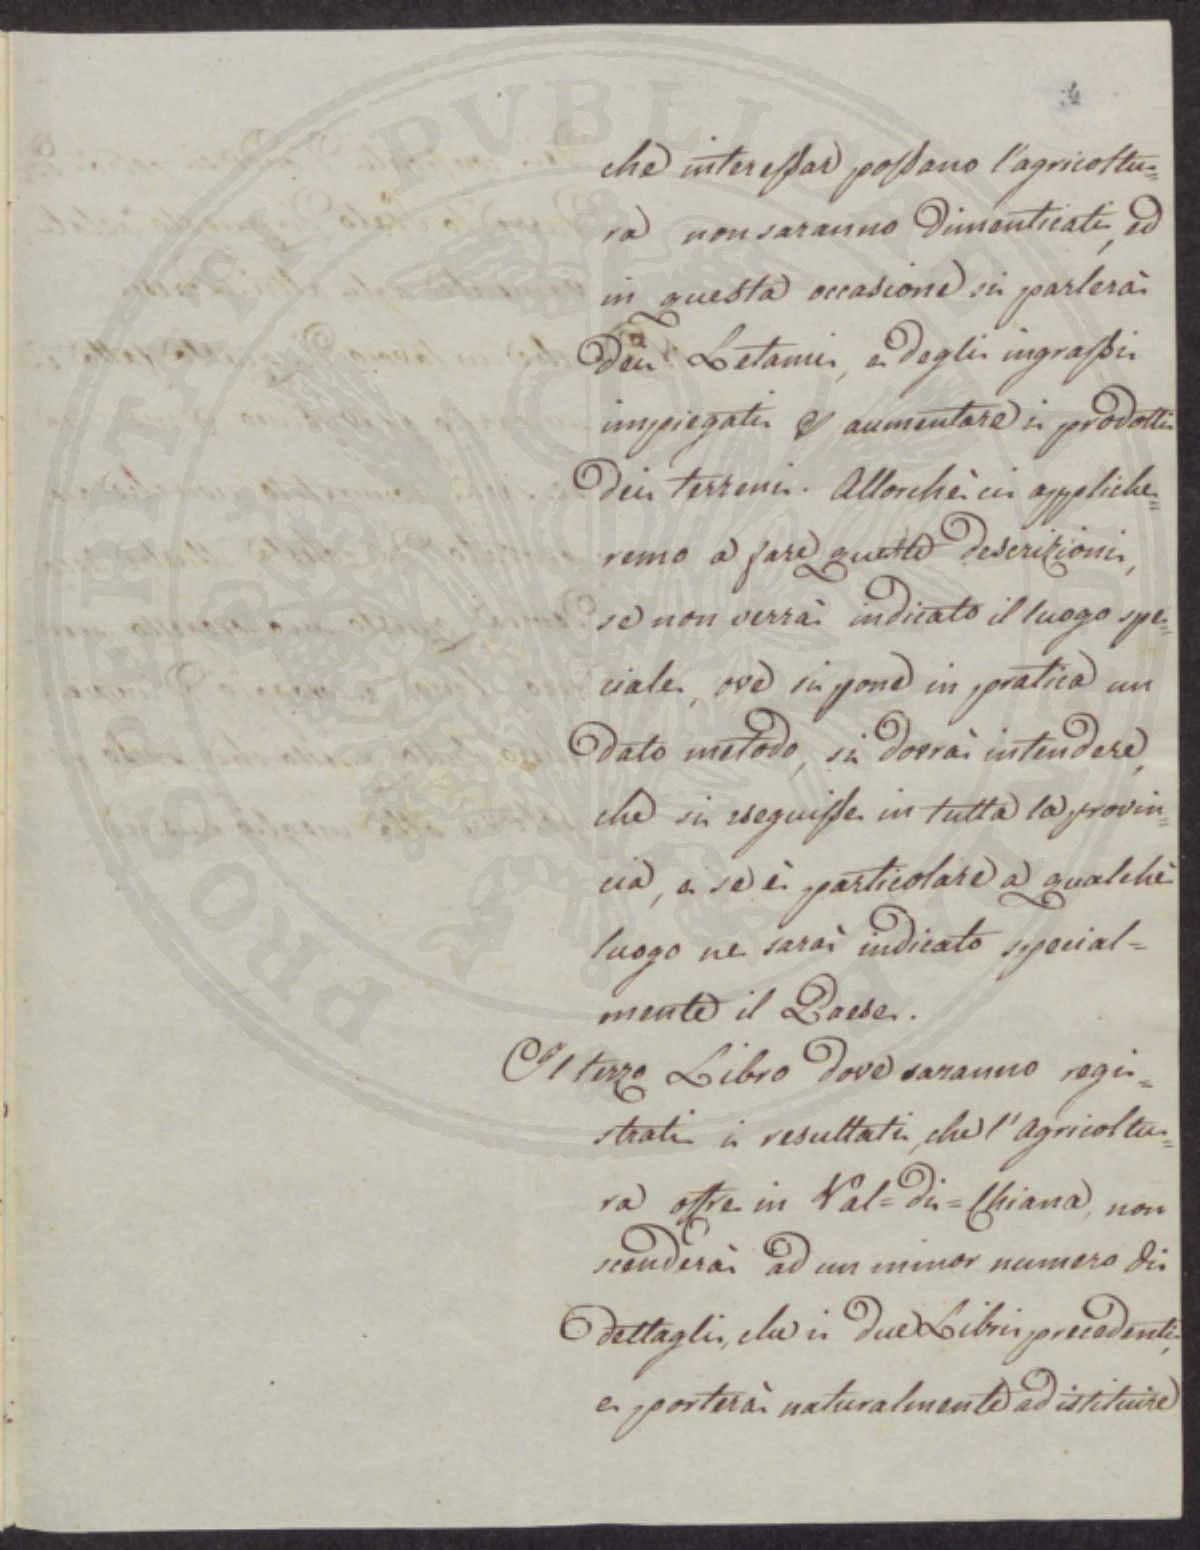 PROSPERITATI PUBLICAE AUGENDAE
che interessar possano l'agricoltu=
ra non saranno dimenticati, ed
in questa occasione si parlerà
dei Letami, e degli ingrassi
impiegati p aumentare i prodotti
dei terreni. Allorchè ci appliche=
remo a fare queste descrizioni,
se non verrà indicato il luogo spe=
ciale, ove si pone in pratica un
dato metodo, si dovrà intendere,
che si eseguisse in tutta la provin=
cia, e se è particolare a qualchè
luogo ne sarà indicato special=
mente il Paese.
Il terzo Libro dove saranno regi=
strati i resultati, che l'Agricoltu=
ra offre in Val=di=Chiana, non
scenderà ad un minor numero di
dettagli, che i due Libri precedenti,
e porterà naturalmente ad istituire